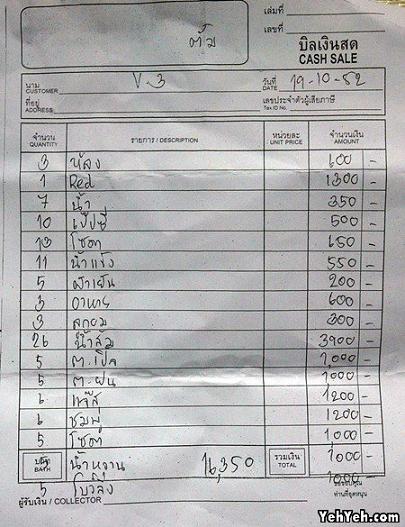 เล่มที่
เลขที่
ตั้ม
บิลเงินสด
CASH SALE
นาม
CUSTOMER
V-3
วันที่
DATE
19-10-52
ที่อยู่
ADDRESS
เลขประจำตัวผู้เสียภาษี
Tax ID No.
จำนวน
QUANTITY
รายการ / DESCRIPTION
หน่วยละ
UNIT PRICE
จำนวนเงิน
AMOUNT
3 600 -
1 Red 1300 -
7 น้ำ 350 -
10 เป๊ปซี่ 500 -
13 โซดา 650 -
11 น้ำแข็ง 550 -
5 ผ้าเย็น 200 -
3 อาหาร 600 -
3 ลูกอม 300 -
26 น้ำส้ม 3900 -
5 ต.เปิ้ล 1000 -
5 ต.ฝน 1000 -
6 แจ๊ส 1200 -
6 ชมพู่ 1200 -
5 โซดา 1000 -
บาท
BATH
น้ำหวาน 16,350
รวมเงิน
TOTAL
1000 -
5 โบว์ลิ่ง 1000 -
ผู้รับเงิน / COLLECTOR
ขอขอบคุณ
ท่านที่อุดหนุน
YehYeh.com